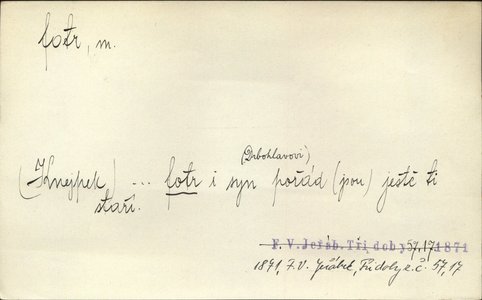 fotr, m.
(Drbohlavovi),
(Knejpek) ... fotr i syn pořád (jsou) ještě ti
staří.
F. V. Jeřáb. Tři doby 57,17 1871
1871, F. V. Jeřábek, Tři doby z. č. 57,17